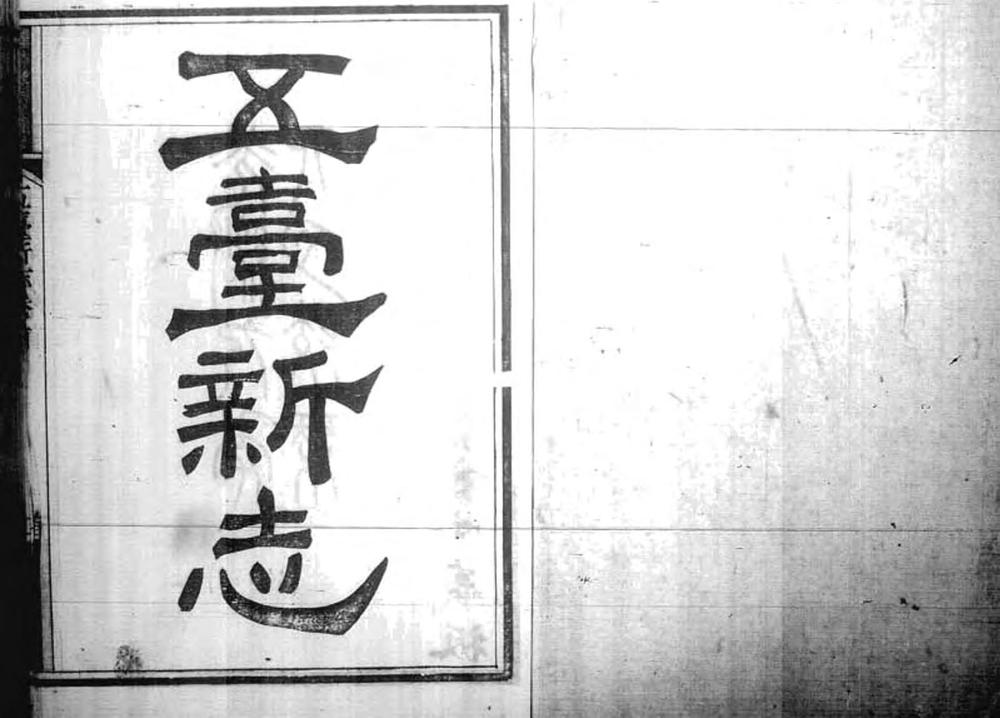 五臺新志